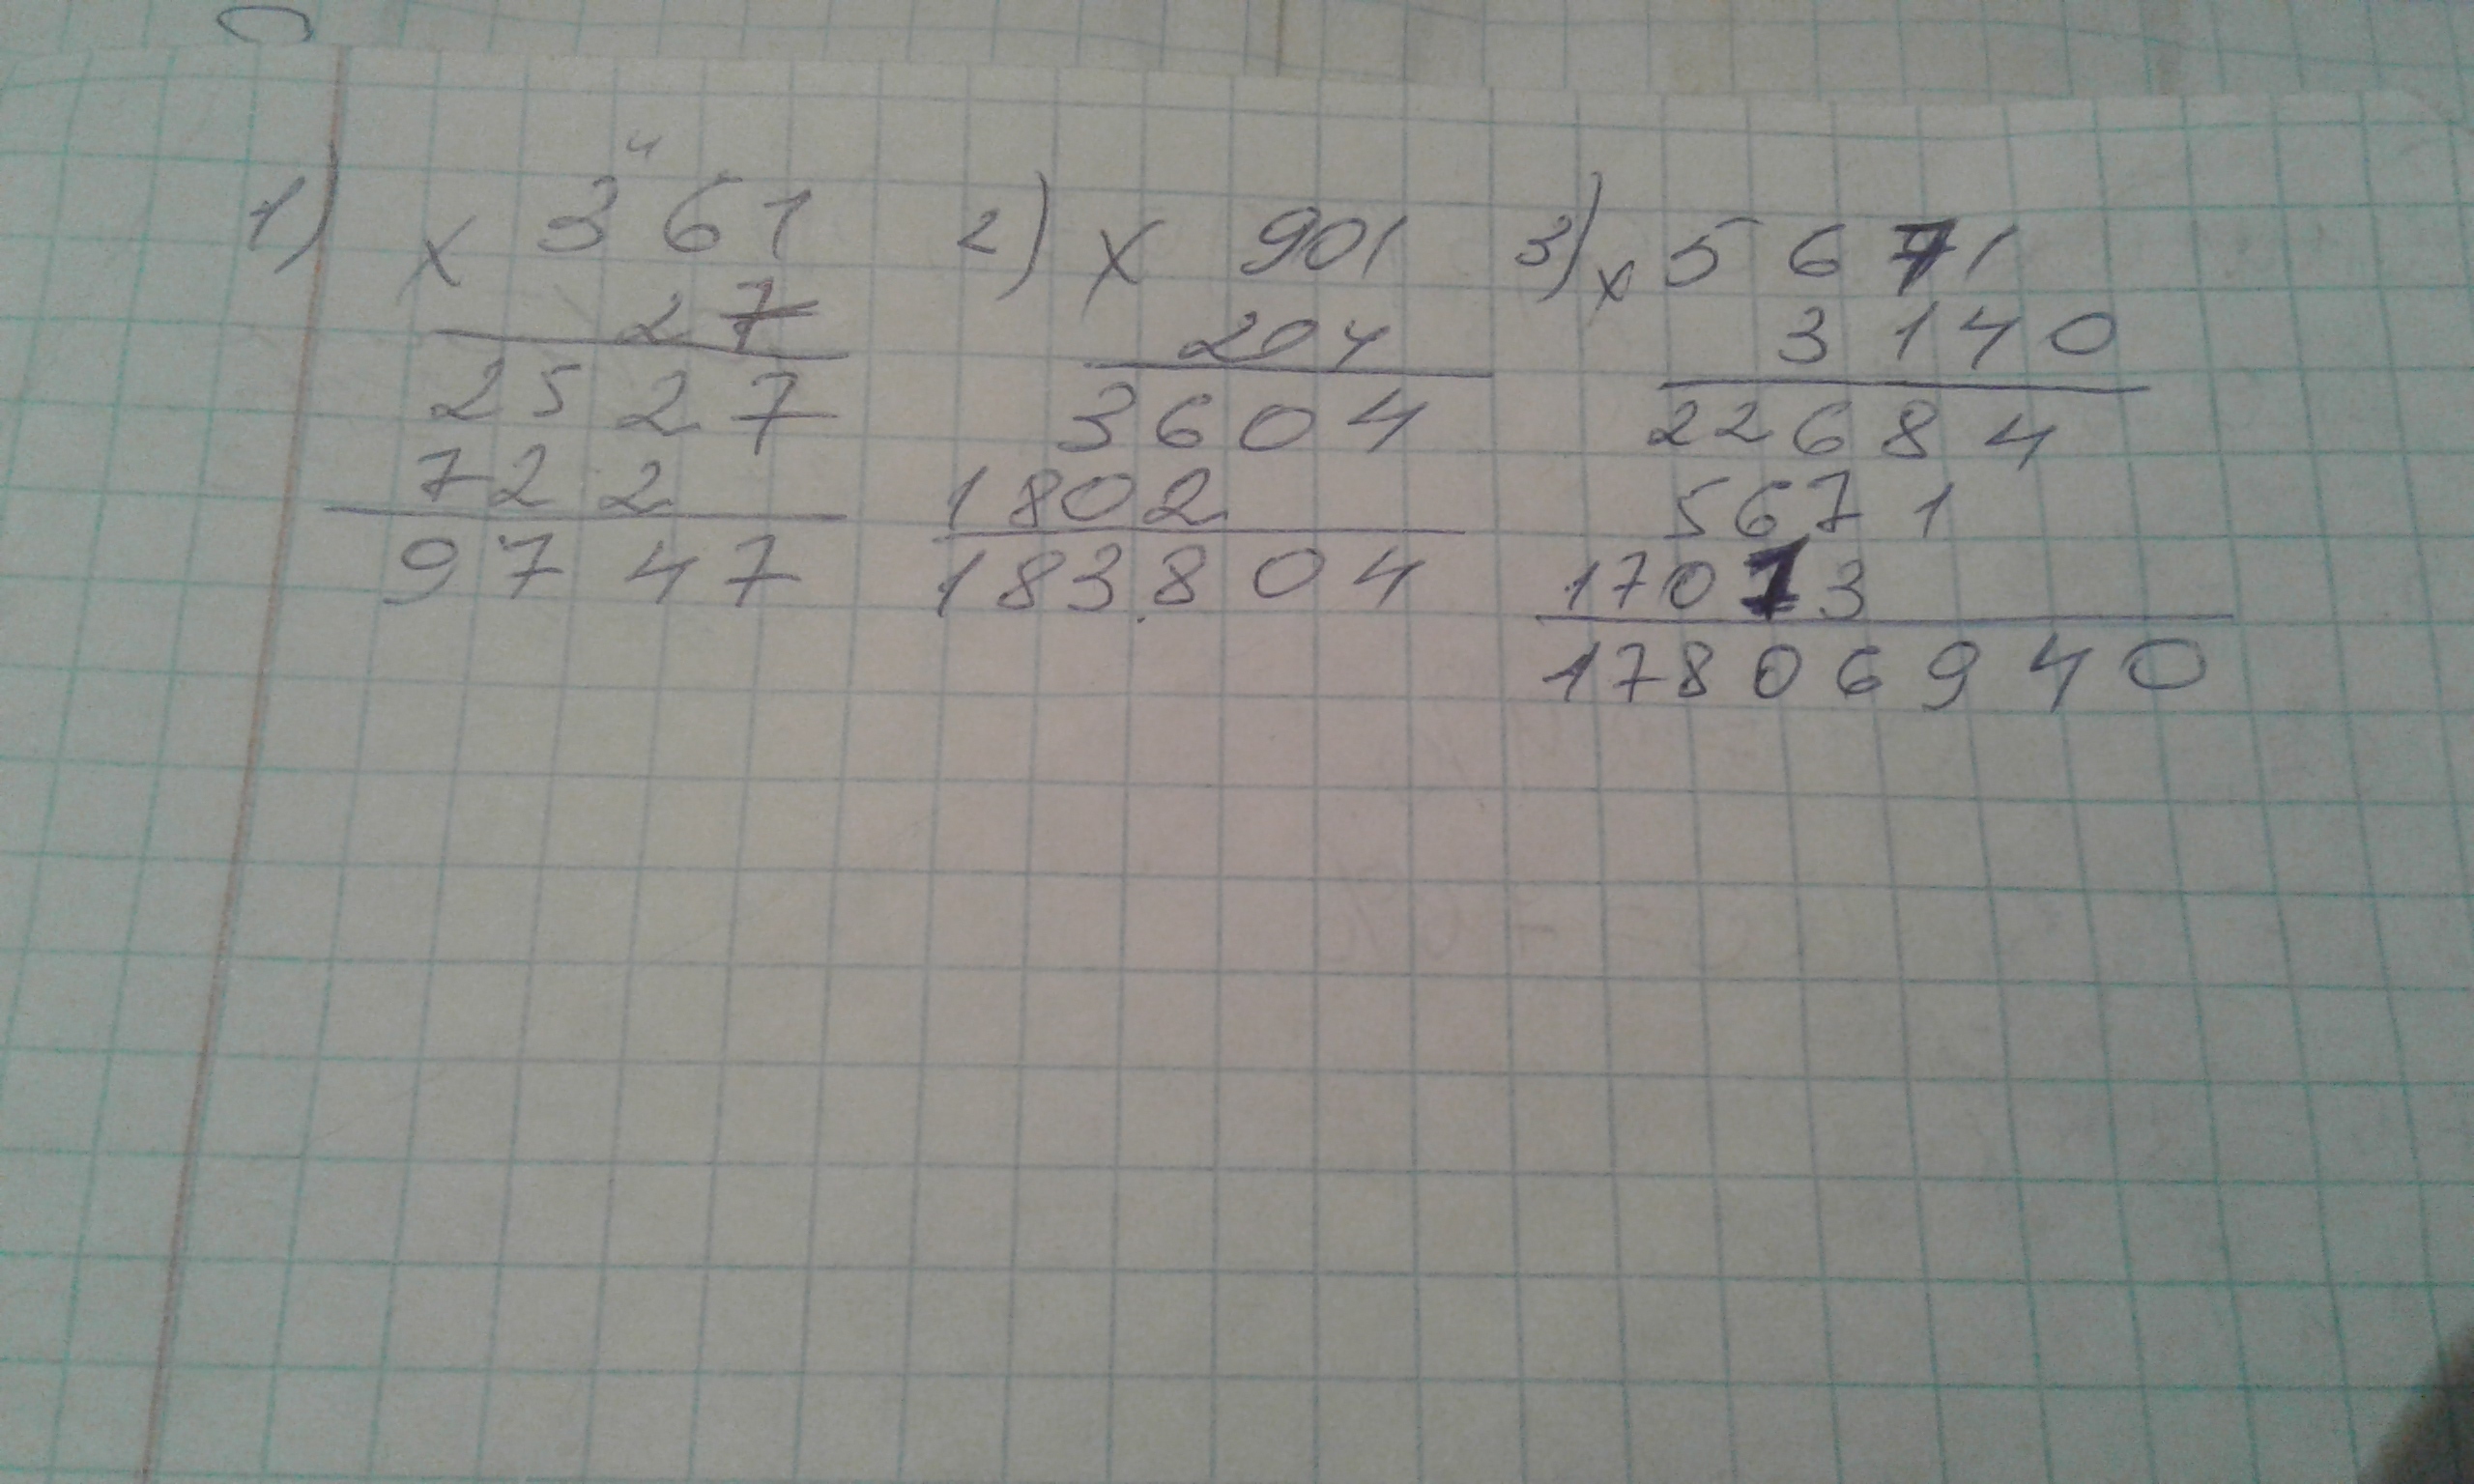 1) × 361
27
2527
722
9747
2) × 901
204
3604
1802
183804
3) × 5671
3140
22684
5671
17013
17806940